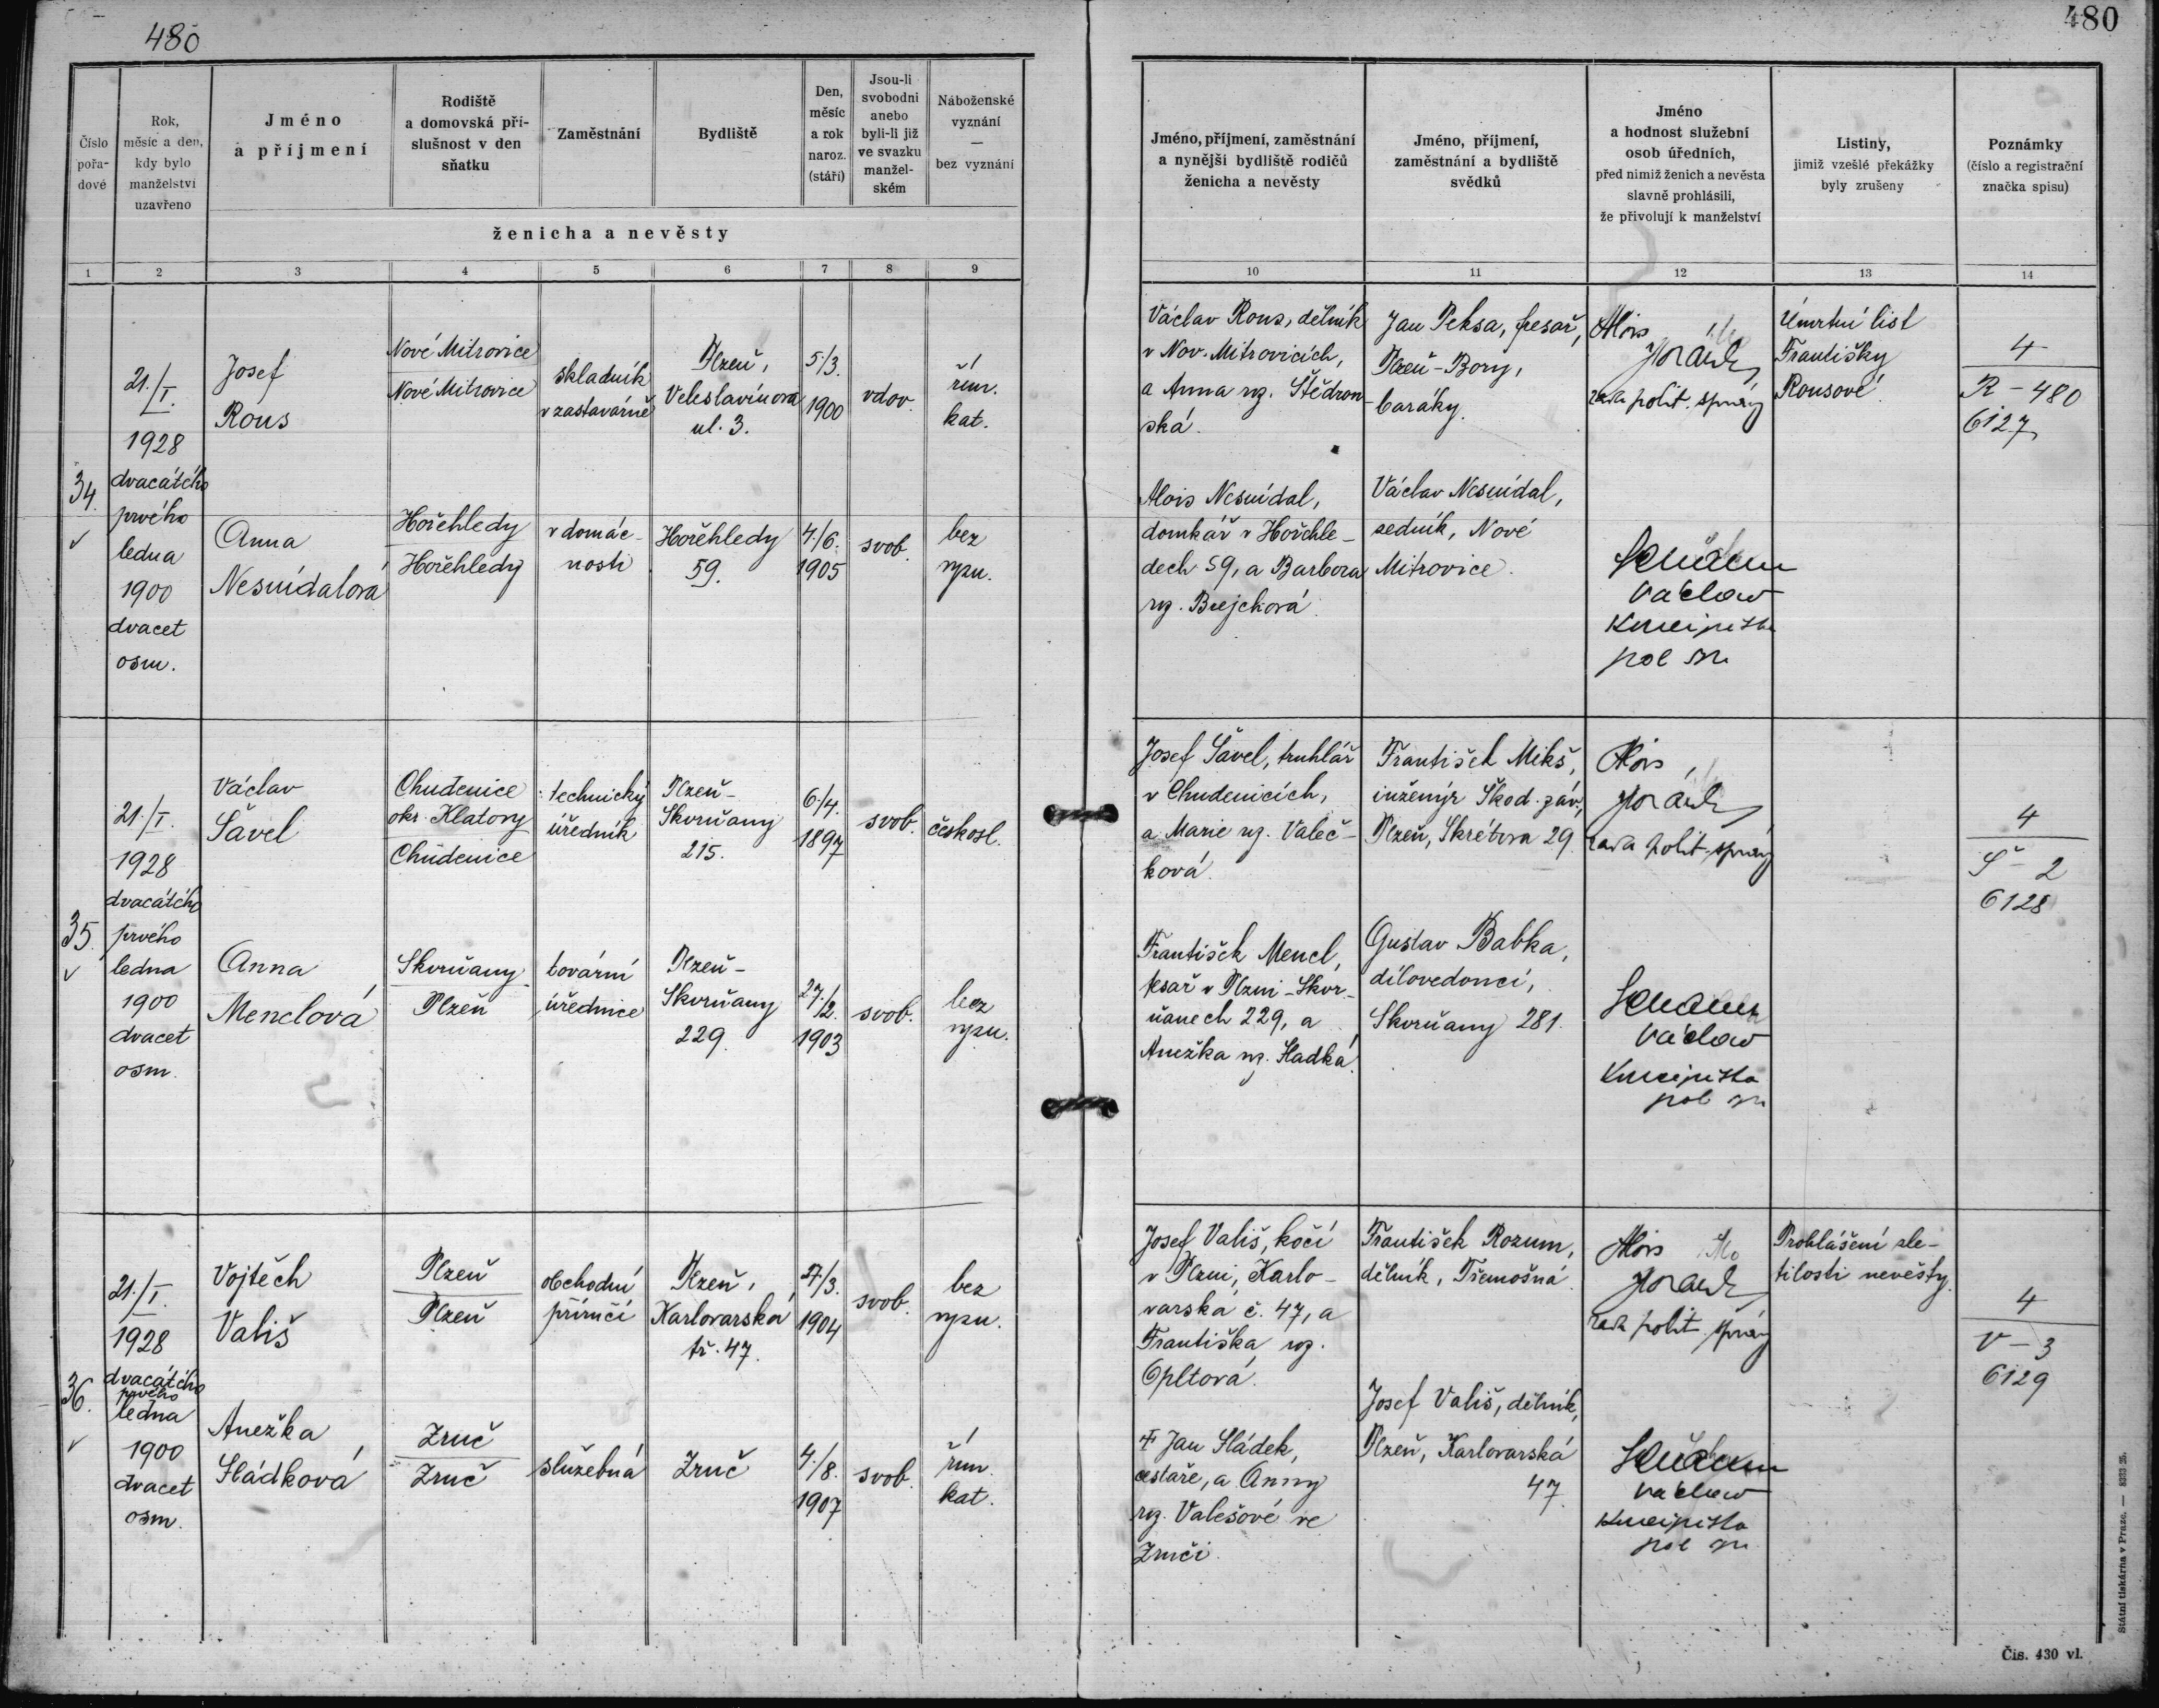 480
480
Číslo pořa- dové
Rok, měsíc a den, kdy bylo manželství uzavřeno
Jméno a příjmení
Rodiště a domovská pří- slušnost v den sňatku
Zaměstnání
Bydliště
Den, měsíc a rok naroz. (stáří)
Jsou-li svobodni anebo byli-li již ve svazku manžel- ském
Náboženské vyznání — bez vyznání
ženicha a nevěsty
Jméno, příjmení, zaměstnání a nynější bydliště rodičů ženicha a nevěsty
Jméno, příjmení, zaměstnání a bydliště svědků
Jméno a hodnost služební osob úředních, před nimiž ženich a nevěsta slavně prohlásili, že přivolují k manželství
Listiny, jimiž vzešlé překážky byly zrušeny
Poznámky (číslo a registrační značka spisu)
1 2 3 4 5 6 7 8 9 10 11 12 13 14
34.
21./I.
1928
dvacátého
prvého
ledna
1900
dvacet
osm.
Josef
Rous
Nové Mitrovice
Nové Mitrovice
skladník
v zastavárně
Plzeň,
Veleslavínova
ul. 3.
5./3.
1900
vdov.
řím.
kat.
Václav Rous, dělník
v Nov. Mitrovicích,
a Anna rz. Štědron-
ská.
Jan Peksa, pesař,
Plzeň-Bory,
baráky.
Alois
rada polit. správy
Úmrtní list
Františky
Rousové.
4
R - 480
6127
Anna
Nesnídalová
Hořehledy
Hořehledy
v domác-
nosti
Hořehledy
59.
4./6.
1905
svob.
bez
vyzn.
Alois Nesnídal,
domkář v Hořehle-
dech 59, a Barbora
rz. Brejchová.
Václav Nesnídal,
sedník, Nové
Mitrovice.
Václav
35.
21./I.
1928
dvacátého
prvého
ledna
1900
dvacet
osm.
Václav
Šavel
Chudenice
okr. Klatovy
Chudenice
technický
úředník
Plzeň-
Skvrňany
215.
6./4.
1897
svob.
českosl.
Josef Šavel, truhlář
v Chudenicích,
a Marie rz. Valeč-
ková.
František Mikš,
inženýr Škod. záv.,
Plzeň, Skrétova 29.
Alois
rada polit. správy
4
Š - 2
6128
Anna
Menclová
Skvrňany
Plzeň
tovární
úřednice
Plzeň-
Skvrňany
229.
27./2.
1903
svob.
bez
vyzn.
František Mencl,
pesař v Plzni-Skvr-
ňanech 229, a
Anežka rz. Sladká.
Gustav Babka,
dílovedoucí,
Skvrňany 281.
Václav
36.
21./I.
1928
dvacátého
prvého
ledna
1900
dvacet
osm.
Vojtěch
Vališ
Plzeň
Plzeň
obchodní
příručí
Plzeň,
Karlovarská
tř. 47.
27./3.
1904
svob.
bez
vyzn.
Josef Vališ, kočí
v Plzni, Karlo-
varská č. 47, a
Františka rz.
Opltová.
František Rozum,
dělník, Třemošná.
Alois
rada polit. správy
Prohlášení zle-
tilosti nevěsty.
4
V - 3
6129
Anežka
Sládková
Zruč
Zruč
služebná
Zruč
4./8.
1907
svob.
řím.
kat.
Jan Sládek,
cestáře, a Anny
rz. Valešové ve
Zruči.
Josef Vališ, dělník,
Plzeň, Karlovarská
47.
Václav
Státní tiskárna v Praze. — 8333-25.
Čís. 430 vl.